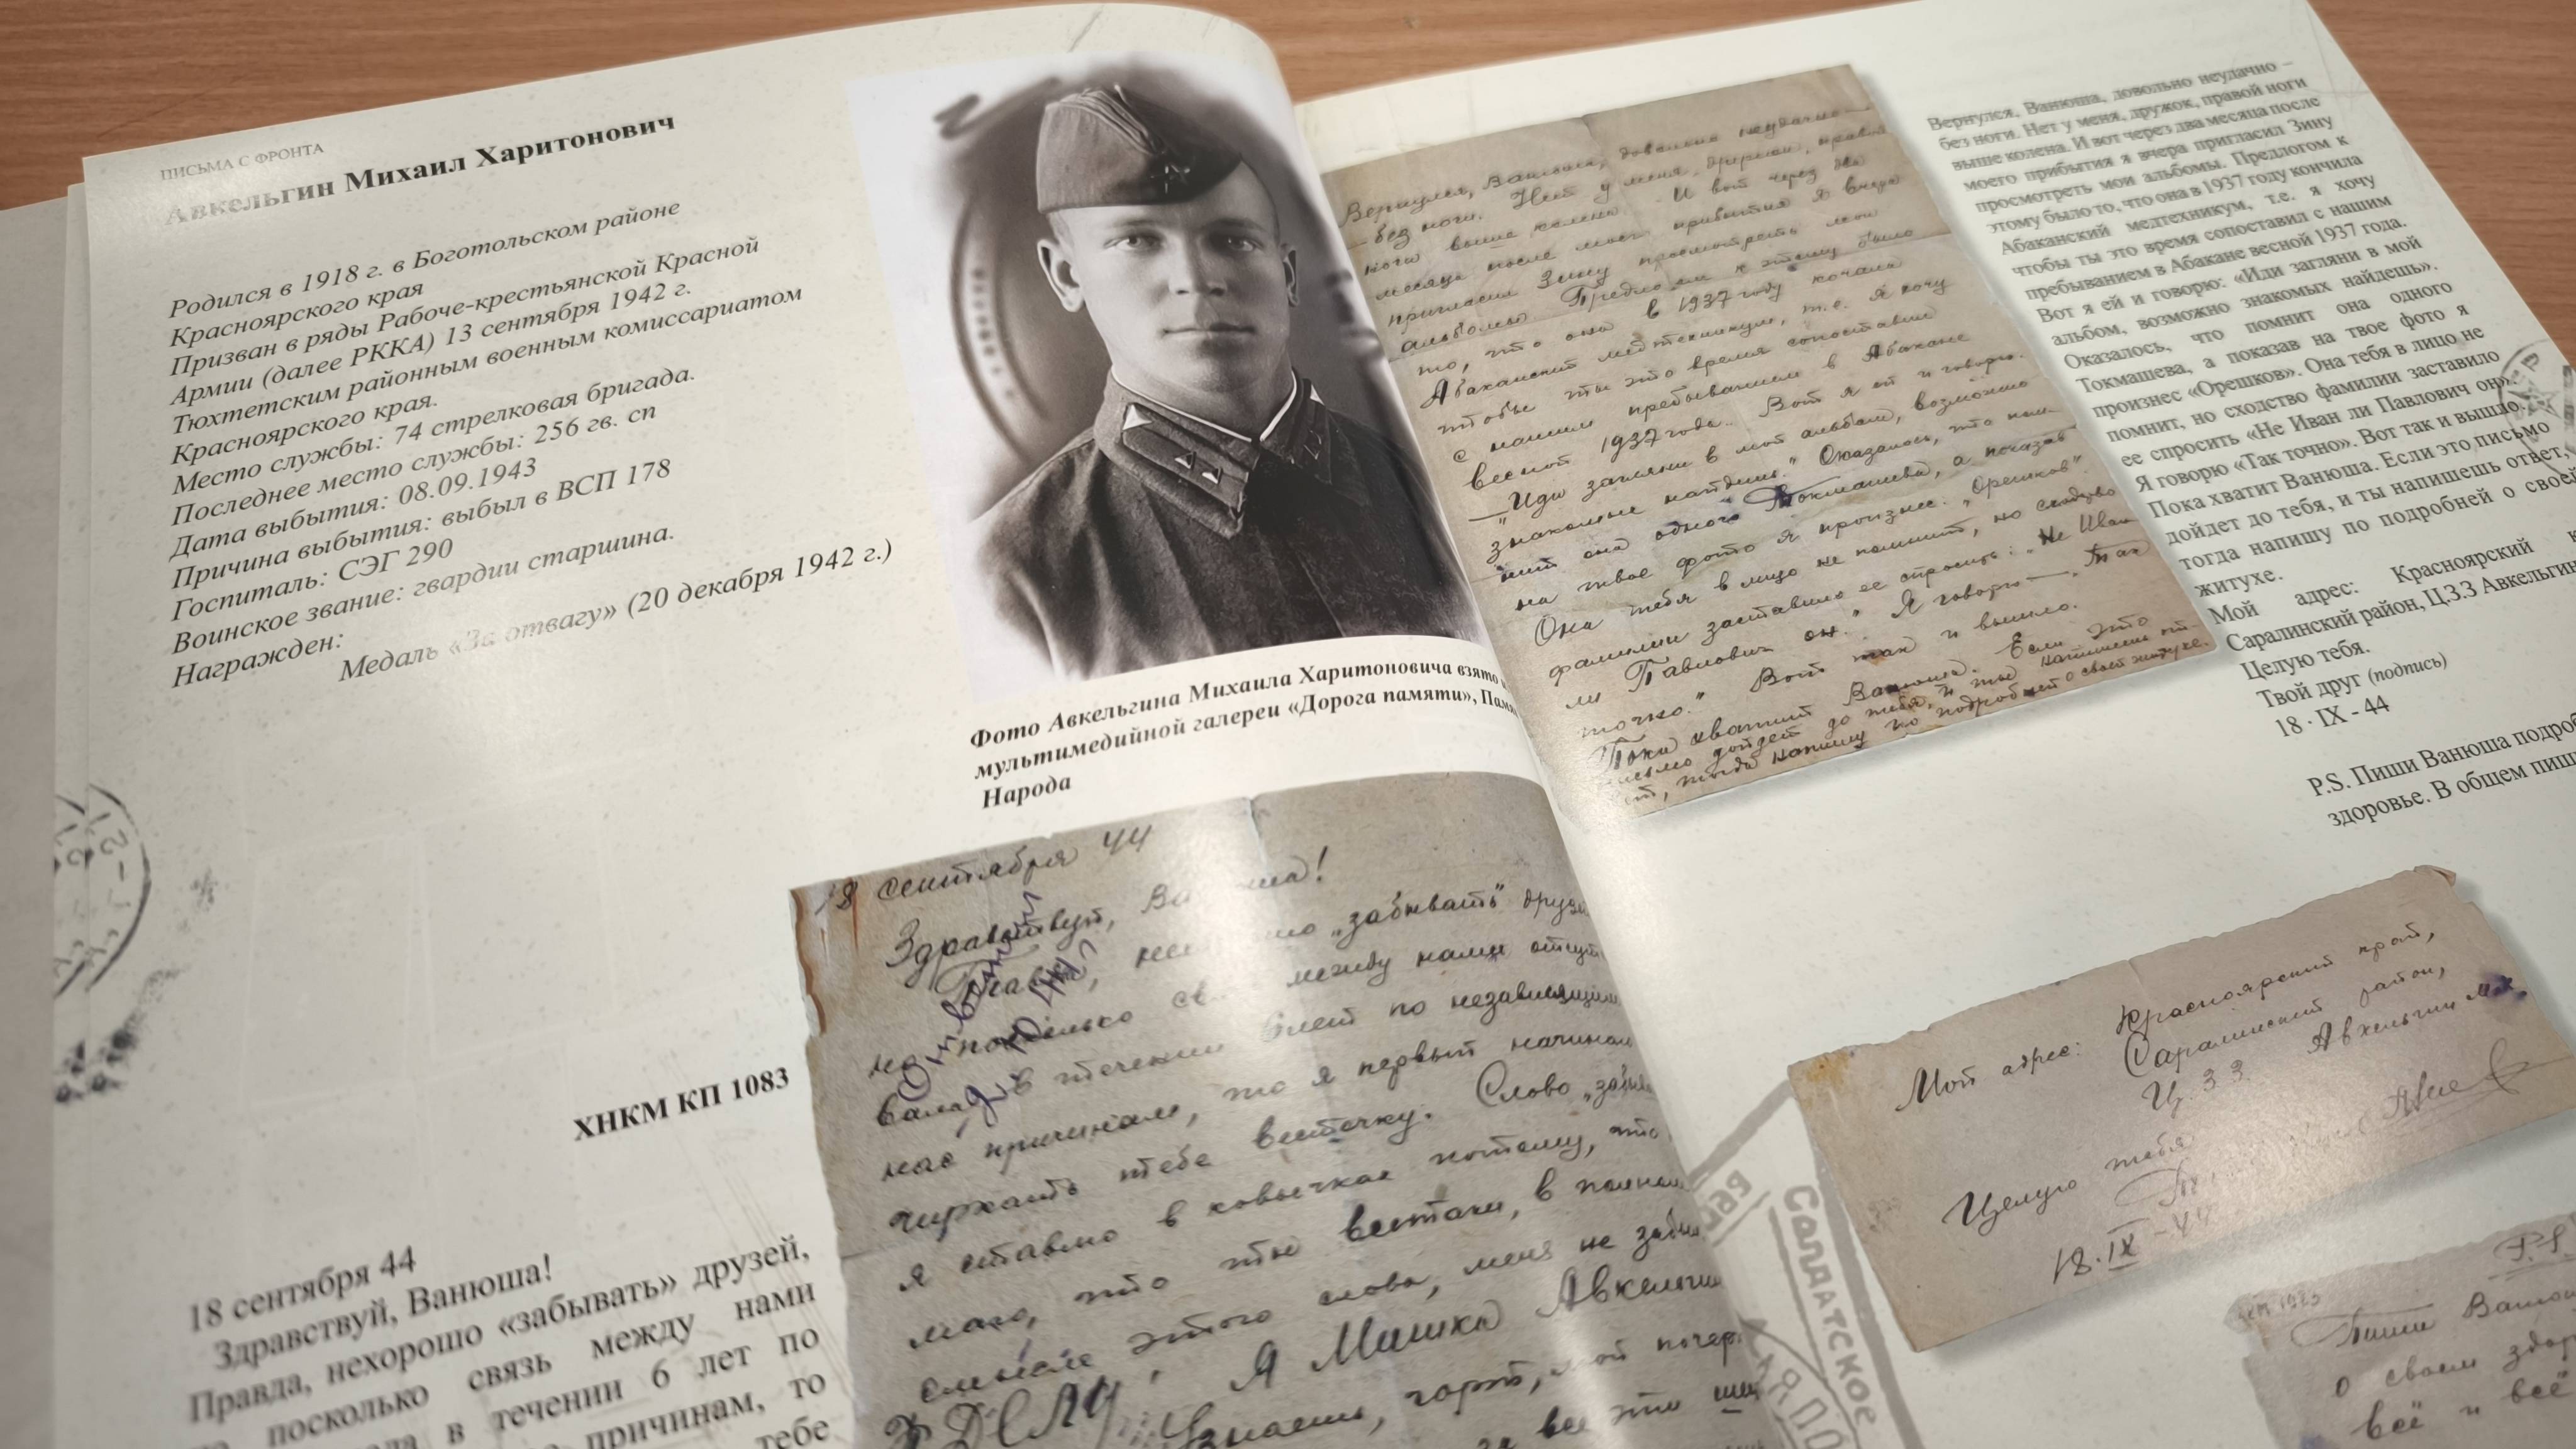 ПИСЬМА С ФРОНТА
Авкельгин Михаил Харитонович
Родился в 1918 г. в Боготольском районе
Красноярского края
Призван в ряды Рабоче-крестьянской Красной
Армии (далее РККА) 13 сентября 1942 г.
Тюхтетским районным военным комиссариатом
Красноярского края.
Место службы: 74 стрелковая бригада.
Последнее место службы: 256 гв. сп
Дата выбытия: 08.09.1943
Причина выбытия: выбыл в ВСП 178
Госпиталь: СЭГ 290
Воинское звание: гвардии старшина.
Награжден:
Медаль «За отвагу» (20 декабря 1942 г.)
Фото Авкельгина Михаила Харитоновича взято
мультимедийной галереи «Дорога памяти»,
Народа
ХНКМ КП 1083
18 сентября 44
Здравствуй, Ванюша!
Правда, нехорошо «забывать» друзей,
посколько связь между нами
в течении 6 лет по
причинам, то
тебе
18 сентября 44
Здравствуй,
"забывать"
между нами
в течении по независящим
нас причинам, то я первый начинаю
чиркать тебе весточку. Слово
я ставлю в ковычках потому, что
что ты всетаки, в полном
смысле этого слова, меня не
Я Мишка
Узнаешь, чорт, мой
все это
Вернулся, Ванюша, довольно неудачно
– без ноги. Нет у меня, дружок, правой
ноги выше колена. И вот через два
месяца после моего прибытия я вчера
пригласил Зину просмотреть мои
альбомы. Предлогом к этому было
то, что она в 1937 году кончила
Абаканский медтехникум, т.е. я хочу
чтобы ты это время сопоставил
с нашим пребыванием в Абакане
весной 1937 года. Вот я ей и говорю:
"Иди загляни в мой альбом, возможно
знакомых найдешь." Оказалось, что пом-
нит она одного Токмашева, а показав
на твое фото я произнес "Орешков".
Она тебя в лицо не помнит, но сходство
фамилии заставило ее спросить: "Не Иван
ли Павлович он." Я говорю – "Так
точно." Вот так и вышло.
Пока хватит Ванюша. Если это
письмо дойдет до тебя, и ты напишешь от-
вет, тогда напишу по подробней о своей житухе.
Вернулся, Ванюша, довольно неудачно –
без ноги. Нет у меня, дружок, правой ноги
выше колена. И вот через два месяца после
моего прибытия я вчера пригласил Зину
просмотреть мои альбомы. Предлогом к
этому было то, что она в 1937 году кончила
Абаканский медтехникум, т.е. я хочу
чтобы ты это время сопоставил с нашим
пребыванием в Абакане весной 1937 года.
Вот я ей и говорю: «Иди загляни в мой
альбом, возможно знакомых найдешь».
Оказалось, что помнит она одного
Токмашева, а показав на твое фото я
произнес «Орешков». Она тебя в лицо не
помнит, но сходство фамилии заставило
ее спросить «Не Иван ли Павлович он».
Я говорю «Так точно». Вот так и вышло.
Пока хватит Ванюша. Если это письмо
дойдет до тебя, и ты напишешь ответ,
тогда напишу по подробней о своей
житухе.
Мой адрес: Красноярский
Саралинский район, Ц.З.З Авкельгин
Целую тебя.
Твой друг (подпись)
18 · IX - 44
P.S. Пиши Ванюша
здоровье. В общем
Мой адрес: Красноярский край,
Саралинский район,
Ц. З З. Авкельгин
Целую тебя
18. IX - 44
P.S
Пиши
о своем
всё и всё
СОЛДАТСКОЕ